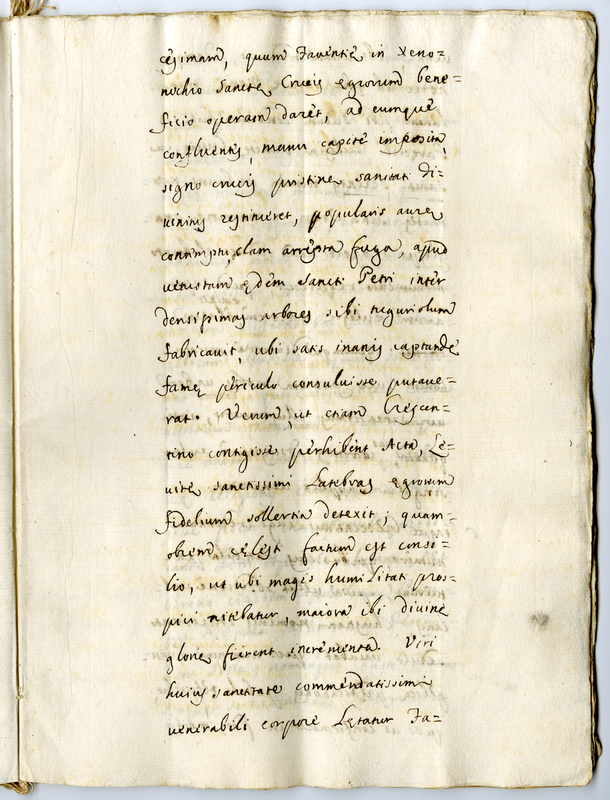 cęsimam, quum Faventię in Xeno=
nochio Sanctę Crucis ęgrorum bene=
ficio operam daret, ad eumque
confluentis, manu capite imposita,
signo crucis pristinę sanitati di-
vinitus restitueret, popularis aurę
contemptu, clam arrepta fuga, apud
vetustam ędem Sancti Petri inter
densissimas arbores sibi tuguriolum
fabricavit, ubi satis inanis captandę
famę periculo consuluisse putave=
rat. Verum, ut etiam Crescen=
tino contigisse perhibent Acta, Le=
vitę sanctissimi Latebras ęgrorum
fidelium sollertia detexit; quam=
obrem cęlesti factum est consi=
lio, ut ubi magis humilitati pros=
pici nitebatur, maiora ibi divinę
glorię fierent incrementa. Viri
huius sanctitate commendatissimi
venerabili corpore Lętatur Fa=